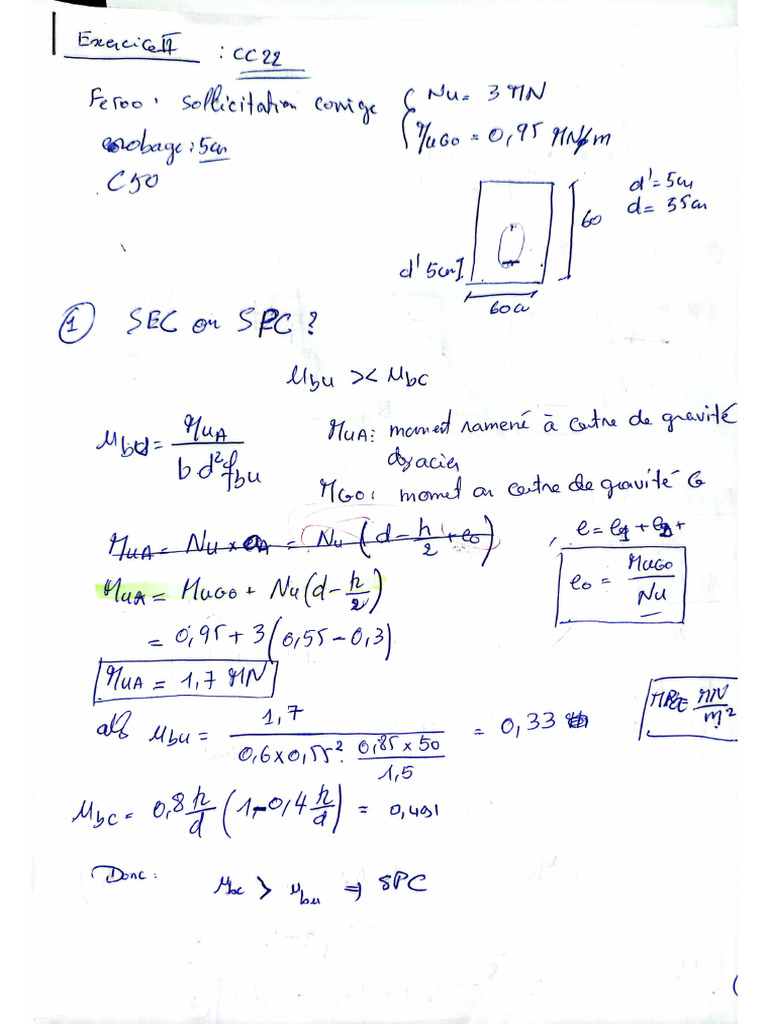 Exercice II : CC22
Fe500, sollicitation corrigé { Nu = 3 MN
enrobage : 5cm { MuGo = 0,95 MN/m
C50
d' = 5cm
d = 55cm
60
d' 5cm
60cm
① SEC ou SPC ?
μbu >< μbc
μbu = MuA / b d² fbu
MuA : moment ramené à centre de gravité
d'acier
MGo : moment au centre de gravité G
MuA = Nu × eA = Nu (d - h/2 + e0) , e = e1 + e2 +
MuA = MuGo + Nu (d - h/2)
e0 = MuGo / Nu
= 0,95 + 3 (0,55 - 0,3)
MuA = 1,7 MN
MPa = MN / m²
μbu = 1,7 / 0,6 × 0,55² · 0,85 × 50 / 1,5 = 0,33
μbc = 0,8 h/d (1 - 0,4 h/d) = 0,491
Donc : μbc > μbu ⇒ SPC